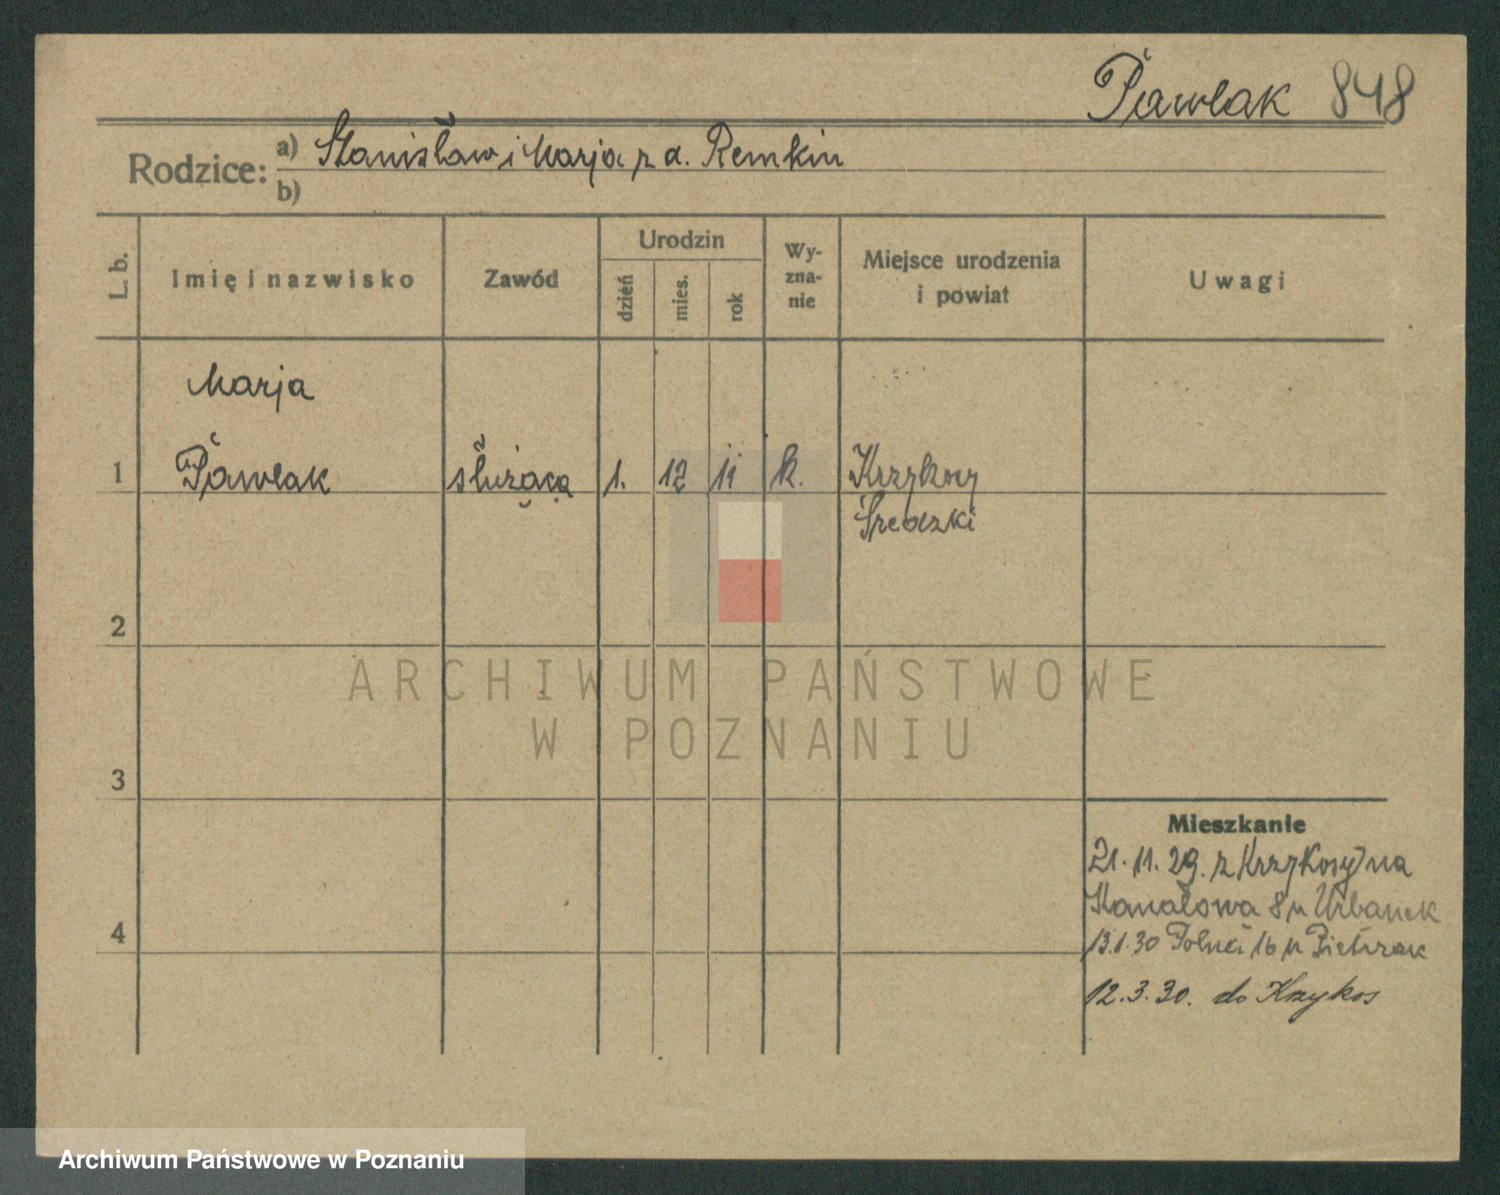 Pawlak 848
Rodzice: a) Stanisław i Marja z d. Remkin
b)
L. b.
Imię i nazwisko
Zawód
Urodzin
dzień
mies.
rok
Wy-
zna-
nie
Miejsce urodzenia
i powiat
Uwagi
Marja
1 Pawlak służąca 1. 12 11 k. Krzykosy
Średzki
2
3
4
Mieszkanie
21.11.29. z Krzykosy na
Kanałowa 8 u Urbanek
13.1.30 Polna 16 u Pietrzak
12.3.30. do Krzykos
ARCHIWUM PAŃSTWOWE
W POZNANIU
Archiwum Państwowe w Poznaniu